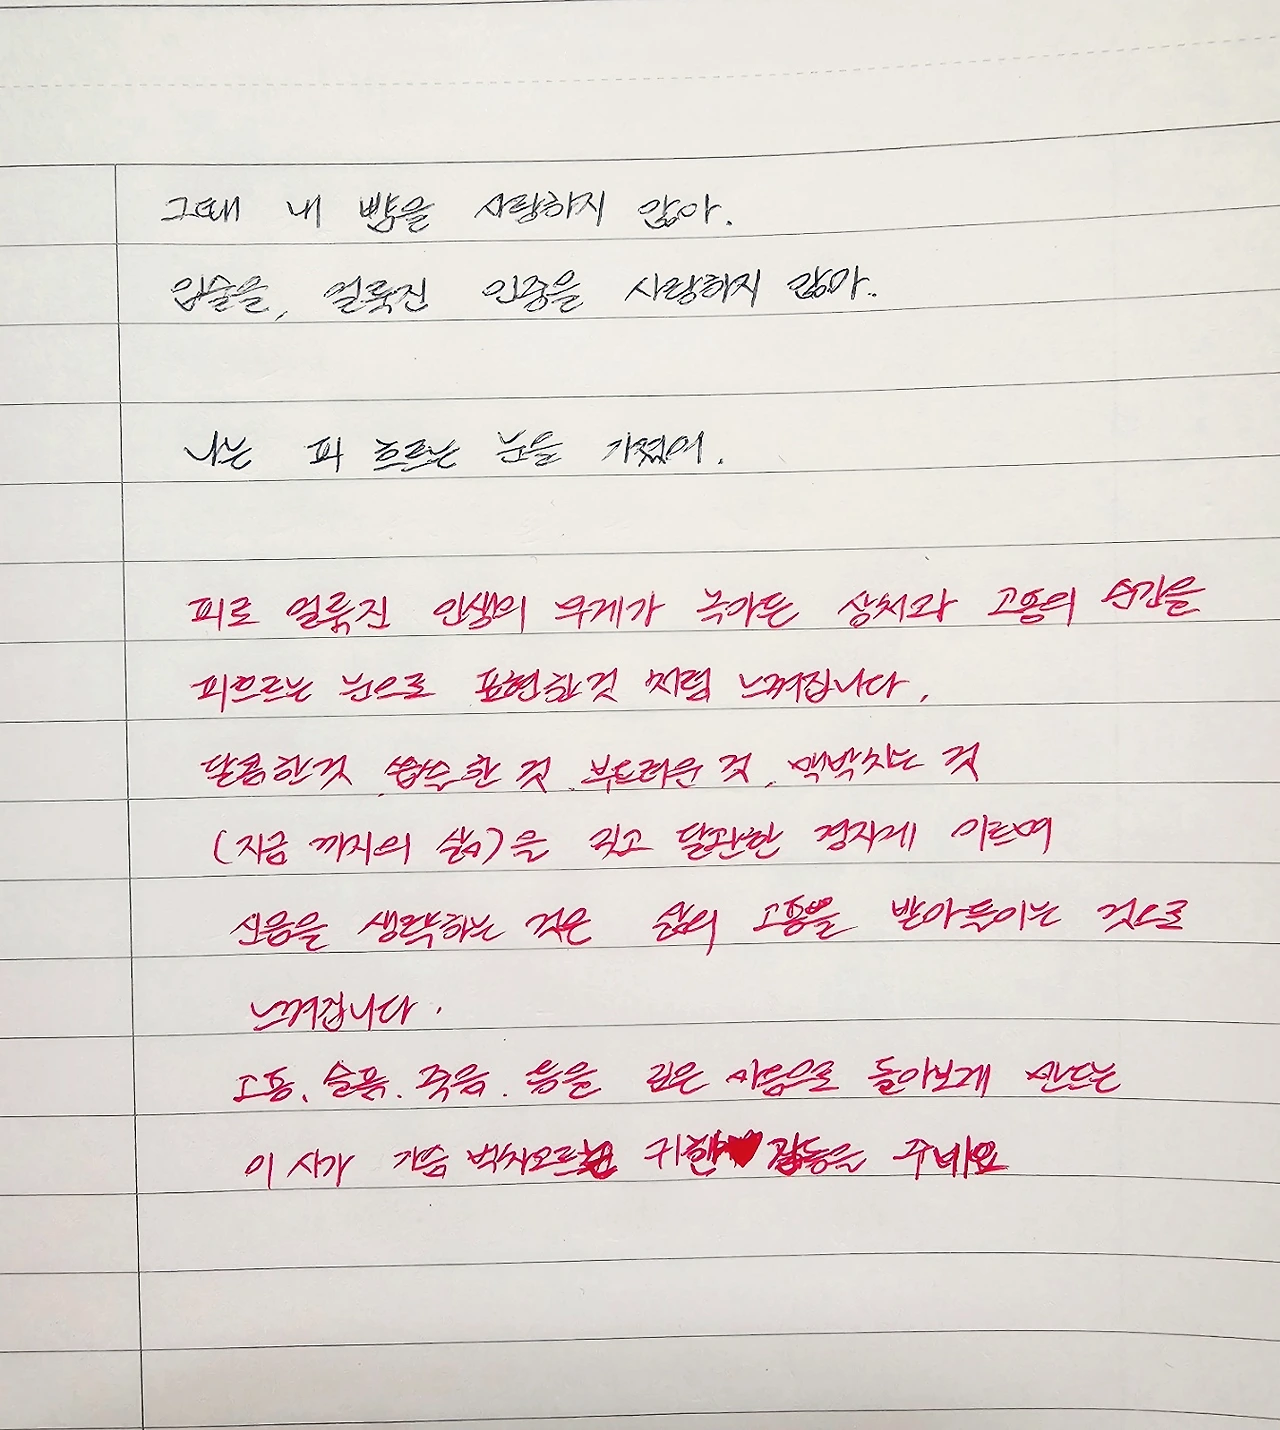 그때 내 뺨을 사랑하지 않아.
입술을, 얼룩진 인중을 사랑하지 않아.
나는 피 흐르는 눈을 가졌어.
피로 얼룩진 인생의 무게가 녹아든 상처와 고통의 순간을
피흐르는 눈으로 표현한것 처럼 느껴집니다.
달콤한것, 씁쓰한 것, 부드러운 것, 맥박치는 것
(지금 까지의 삶)을 잊고 달관한 경지에 이르며
신음을 생략하는 것은 삶의 고통을 받아들이는 것으로
느껴집니다.
고통, 슬픔, 죽음, 등을 깊은 마음으로 돌아보게 만드는
이 시가 가슴 벅차오르는 귀한♥감동을 주네요